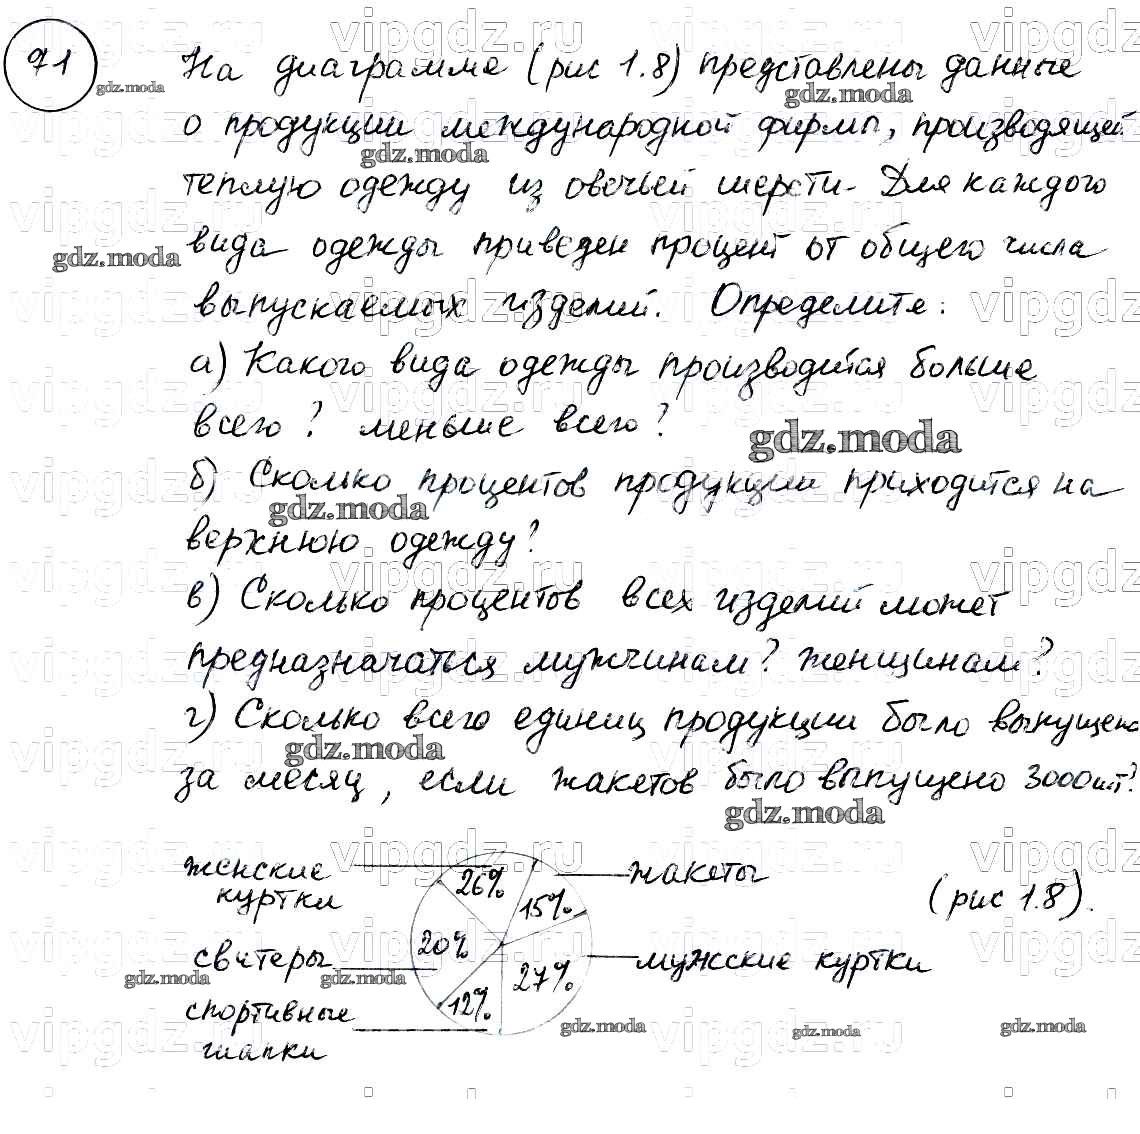 71
На диаграмме (рис 1.8) представлены данные
о продукции международной фирмы, производящей
теплую одежду из овечьей шерсти. Для каждого
вида одежды приведен процент от общего числа
выпускаемых изделий. Определите:
а) Какого вида одежды производится больше
всего? меньше всего?
б) Сколько процентов продукции приходится на
верхнюю одежду?
в) Сколько процентов всех изделий может
предназначаться мужчинам? женщинам?
г) Сколько всего единиц продукции было выпущено
за месяц, если жакетов было выпущено 3000 шт?
женские
куртки
26%
жакеты
15%
(рис 1.8).
свитеры
20%
27%
мужские куртки
спортивные
шапки
12%
gdz.moda
vipgdz.ru